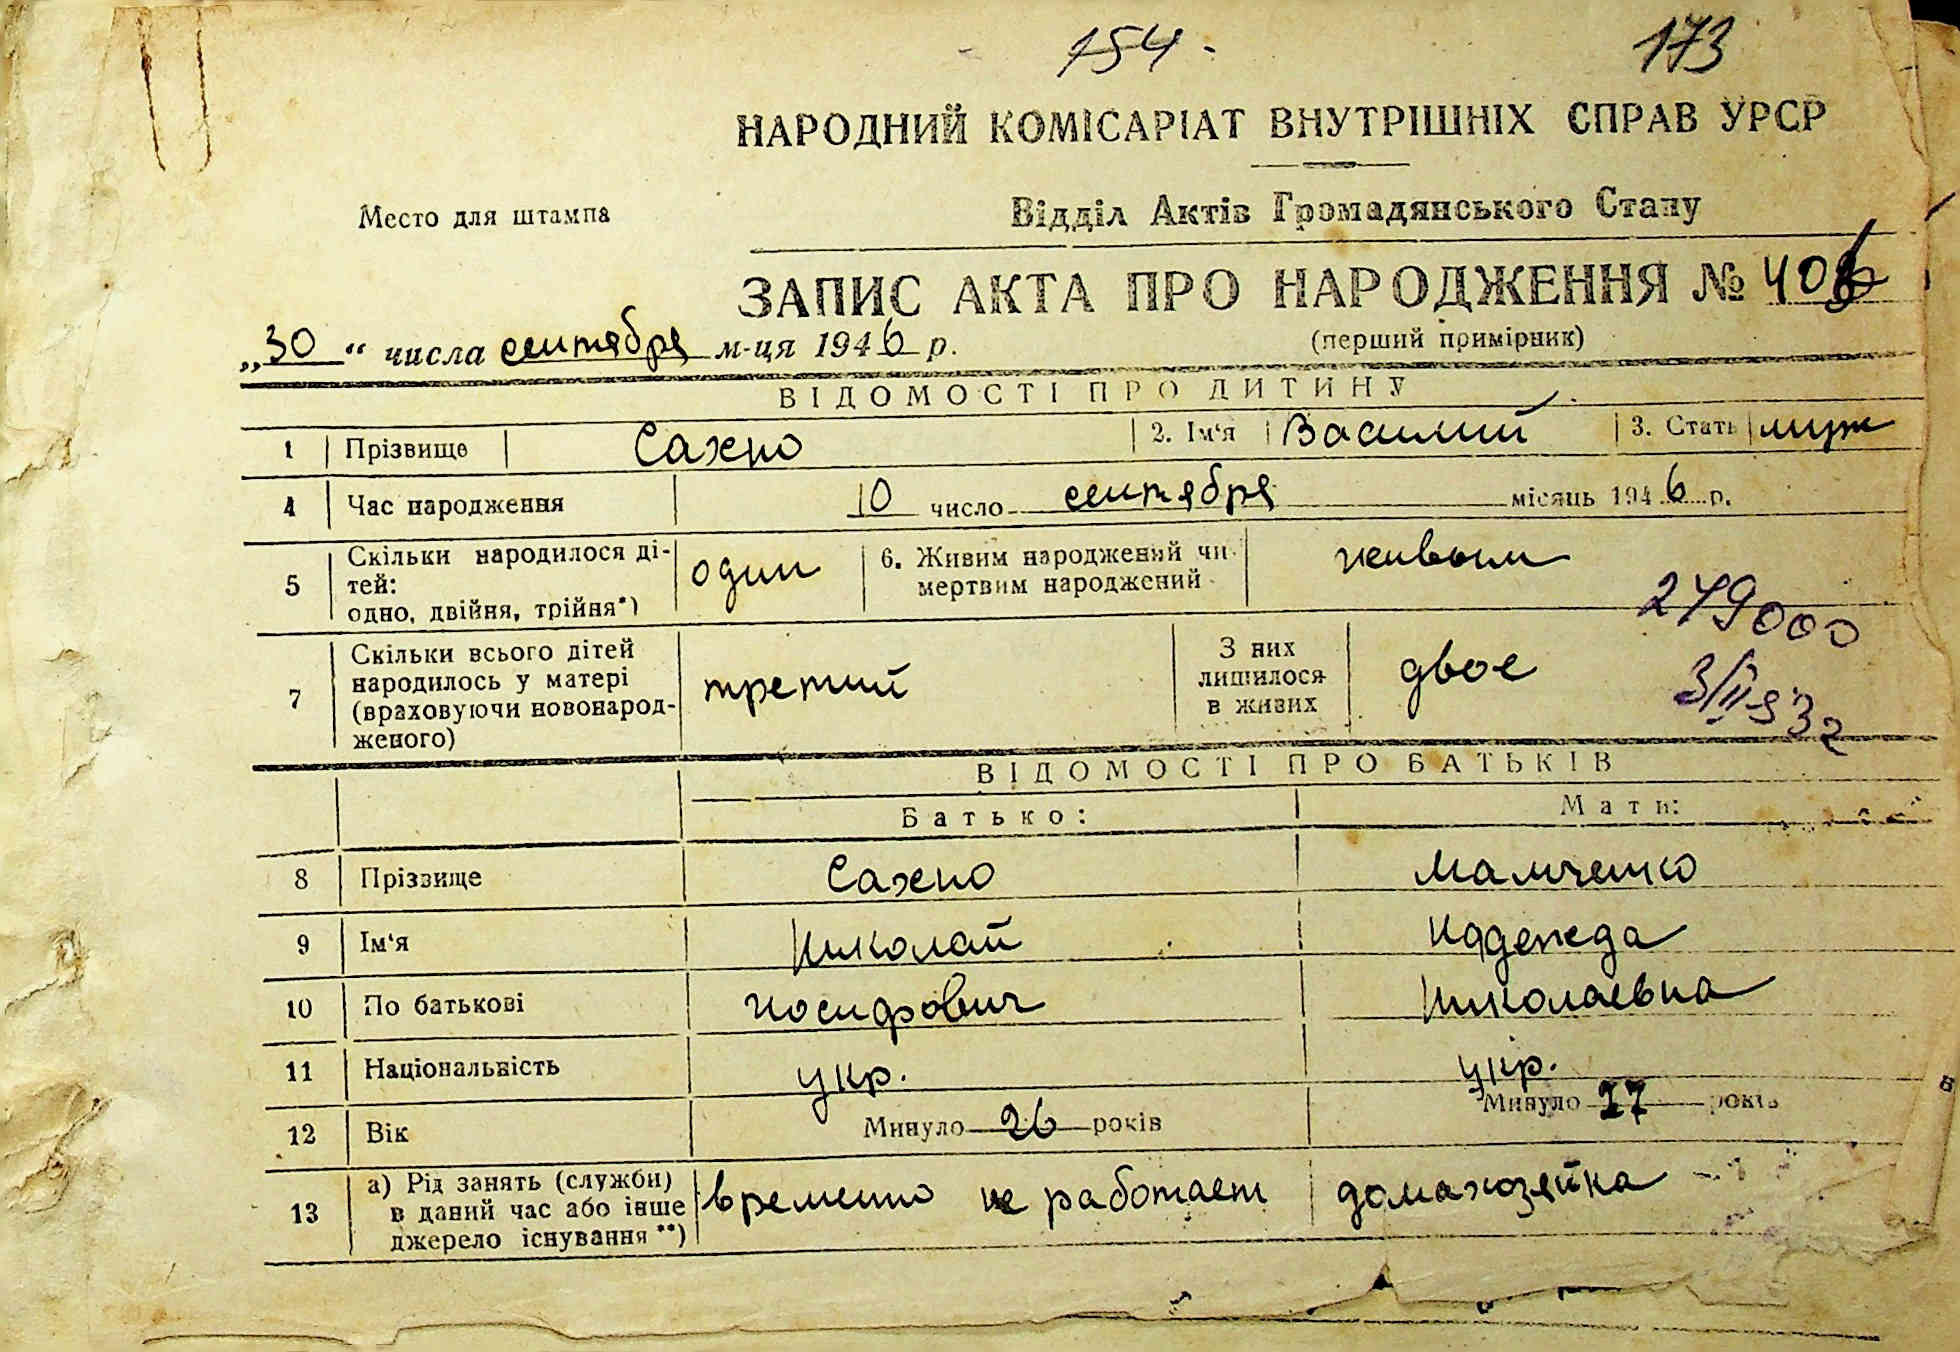 154 - 173
НАРОДНИЙ КОМІСАРІАТ ВНУТРІШНІХ СПРАВ УРСР
Место для штампа
Відділ Актів Громадянського Стану
ЗАПИС АКТА ПРО НАРОДЖЕННЯ № 406
(перший примірник)
„30“ числа сентября м-ця 1946 р.
ВІДОМОСТІ ПРО ДИТИНУ
1 Прізвище Сахно 2. Ім‘я Василий 3. Стать муж
4 Час народження 10 число сентября місяць 1946 р.
5 Скільки народилося ді-
тей:
одно, двійня, трійня*) один 6. Живим народжений чи
мертвим народжений живым
249000
7 Скільки всього дітей
народилось у матері
(враховуючи новонарод-
женого) третий З них
лишилося
в живих двое
ВІДОМОСТІ ПРО БАТЬКІВ
Батько: Мати:
8 Прізвище Сахно Мамченко
9 Ім‘я Николай Надежда
10 По батькові Иосифович Николаевна
11 Національність укр. укр.
12 Вік Минуло 26 років Минуло 27 років
13 а) Рід занять (служби)
в даний час або інше
джерело існування **) временно не работает домахозяйка